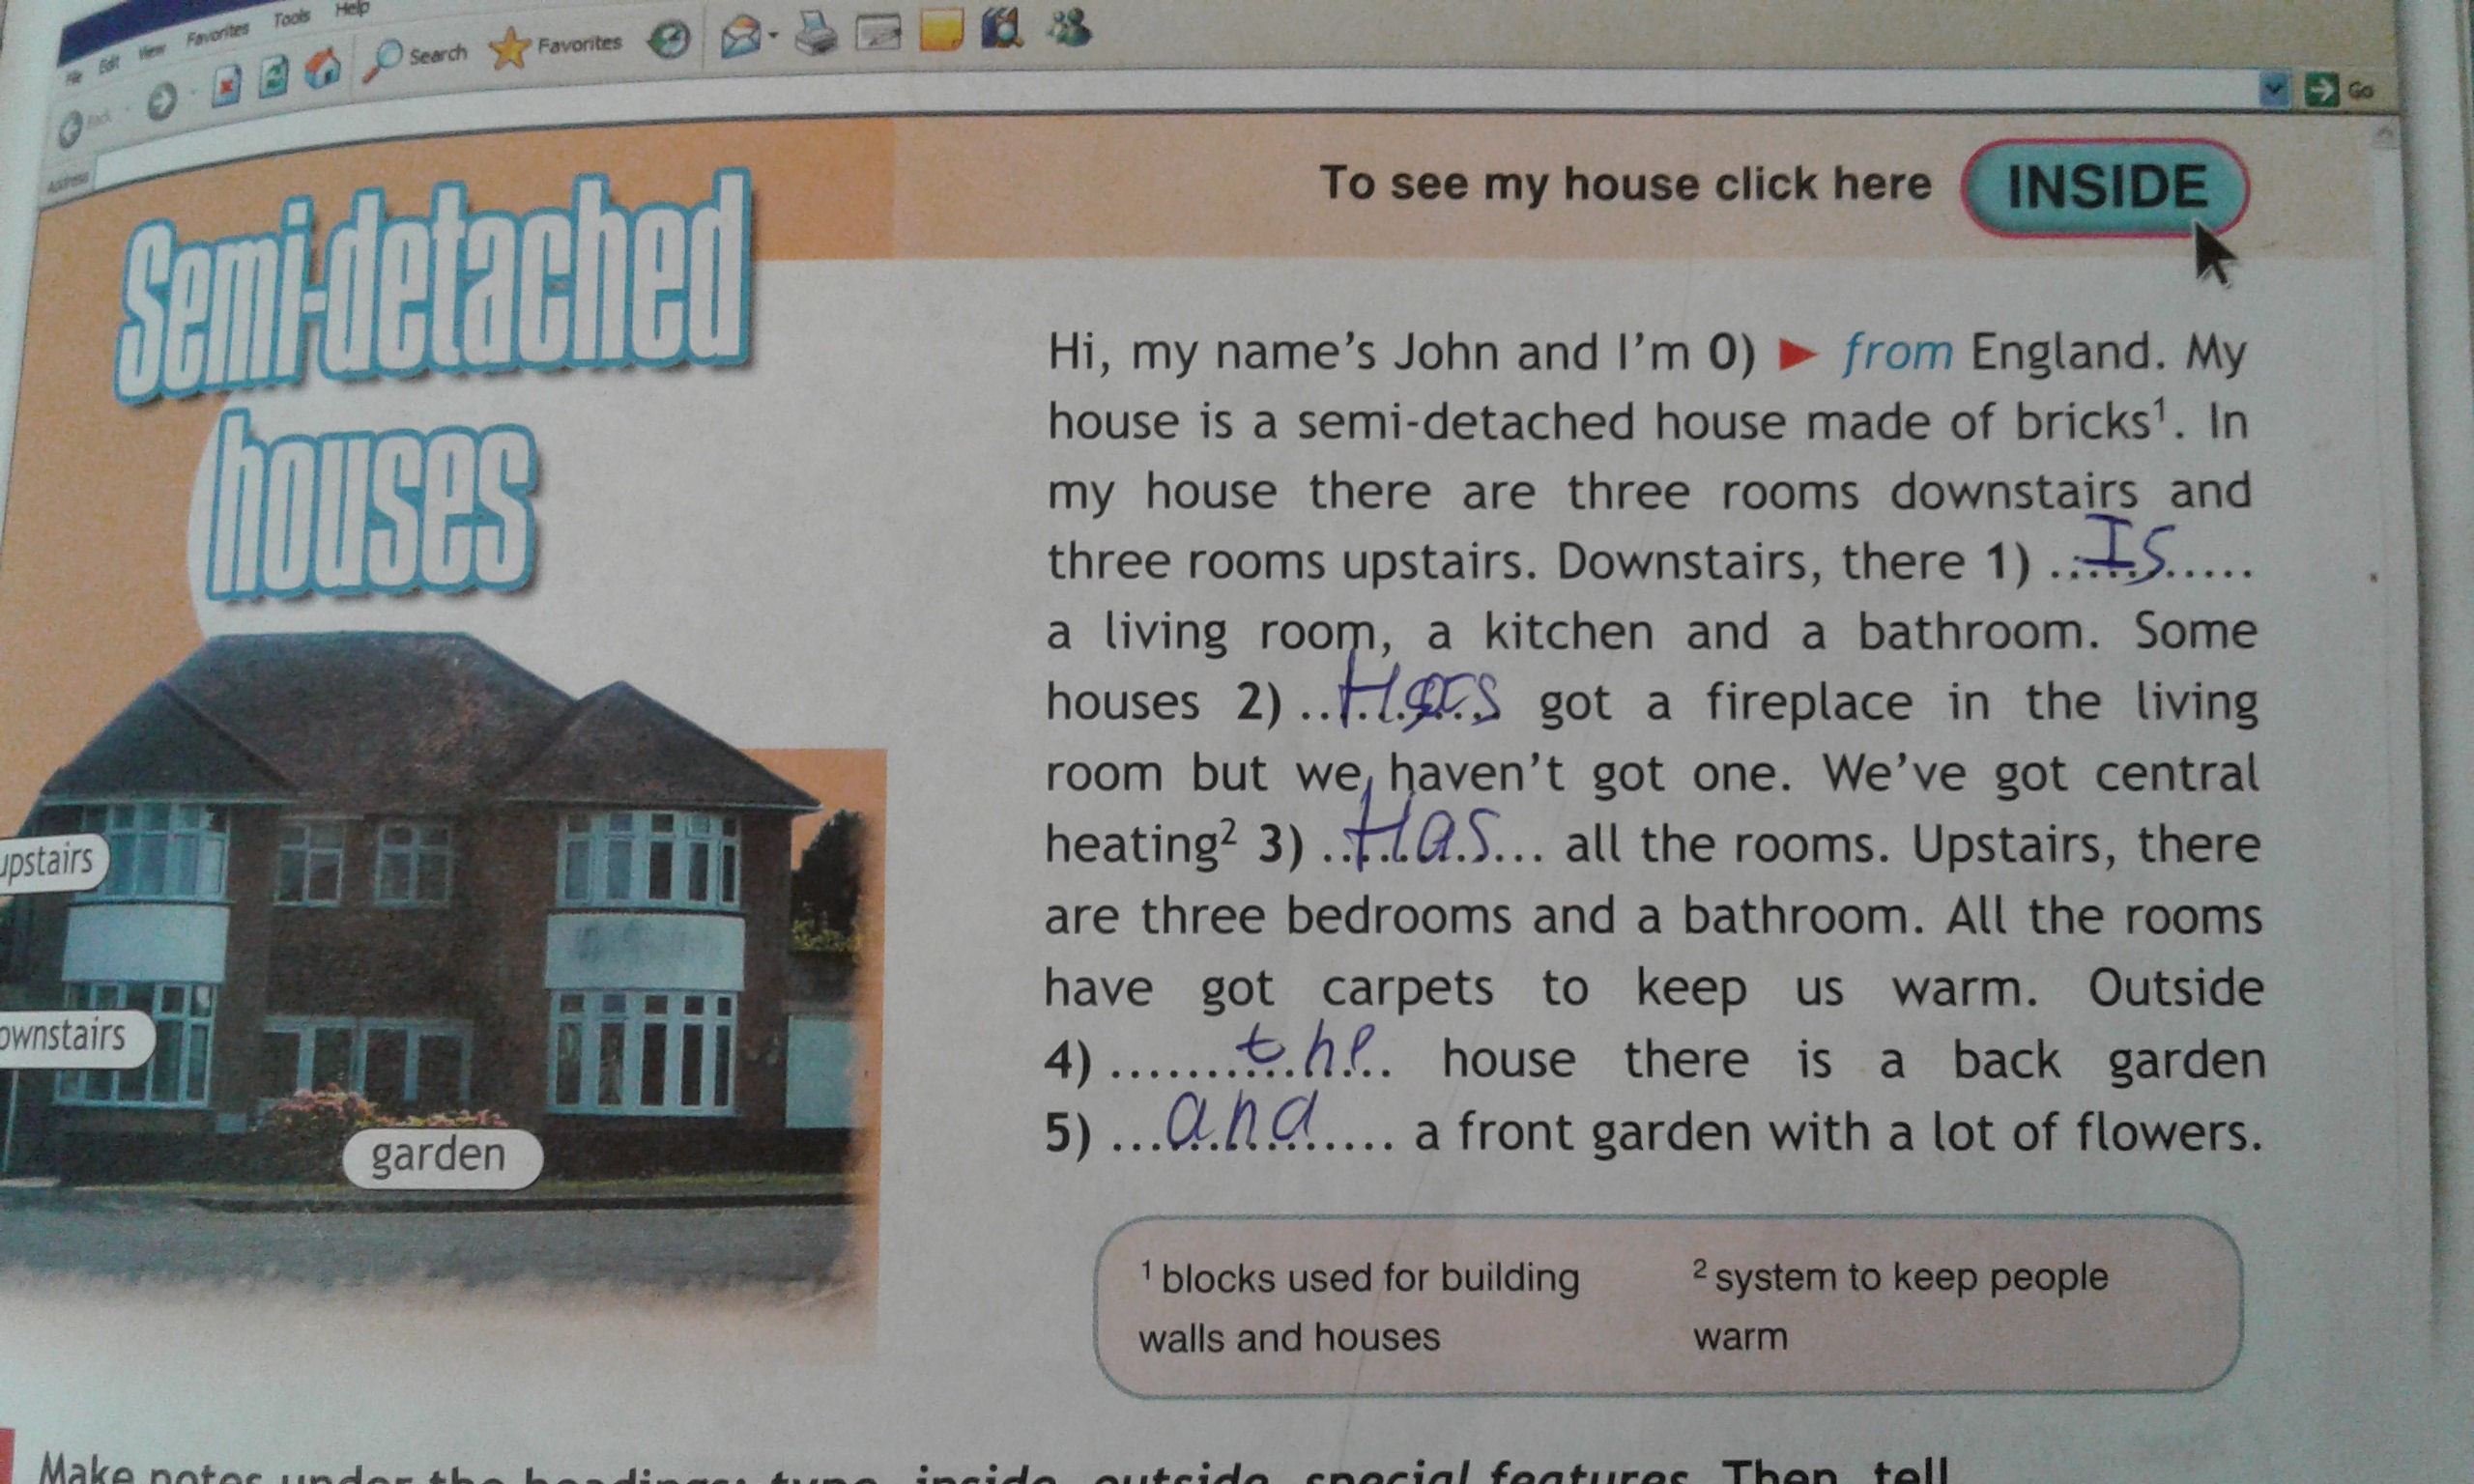 File Edit View Favorites Tools Help
Back Search Favorites
Address Go
Semi-detached
houses
To see my house click here INSIDE
Hi, my name's John and I'm 0) ► from England. My
house is a semi-detached house made of bricks¹. In
my house there are three rooms downstairs and
three rooms upstairs. Downstairs, there 1) ....Is.....
a living room, a kitchen and a bathroom. Some
houses 2) ..Has got a fireplace in the living
room but we haven't got one. We've got central
heating² 3) ..Has... all the rooms. Upstairs, there
are three bedrooms and a bathroom. All the rooms
have got carpets to keep us warm. Outside
4) .......the.. house there is a back garden
5) ...and..... a front garden with a lot of flowers.
upstairs
ownstairs
garden
¹ blocks used for building
walls and houses
² system to keep people
warm
Make notes under the headings: type, inside, outside, special features. Then, tell